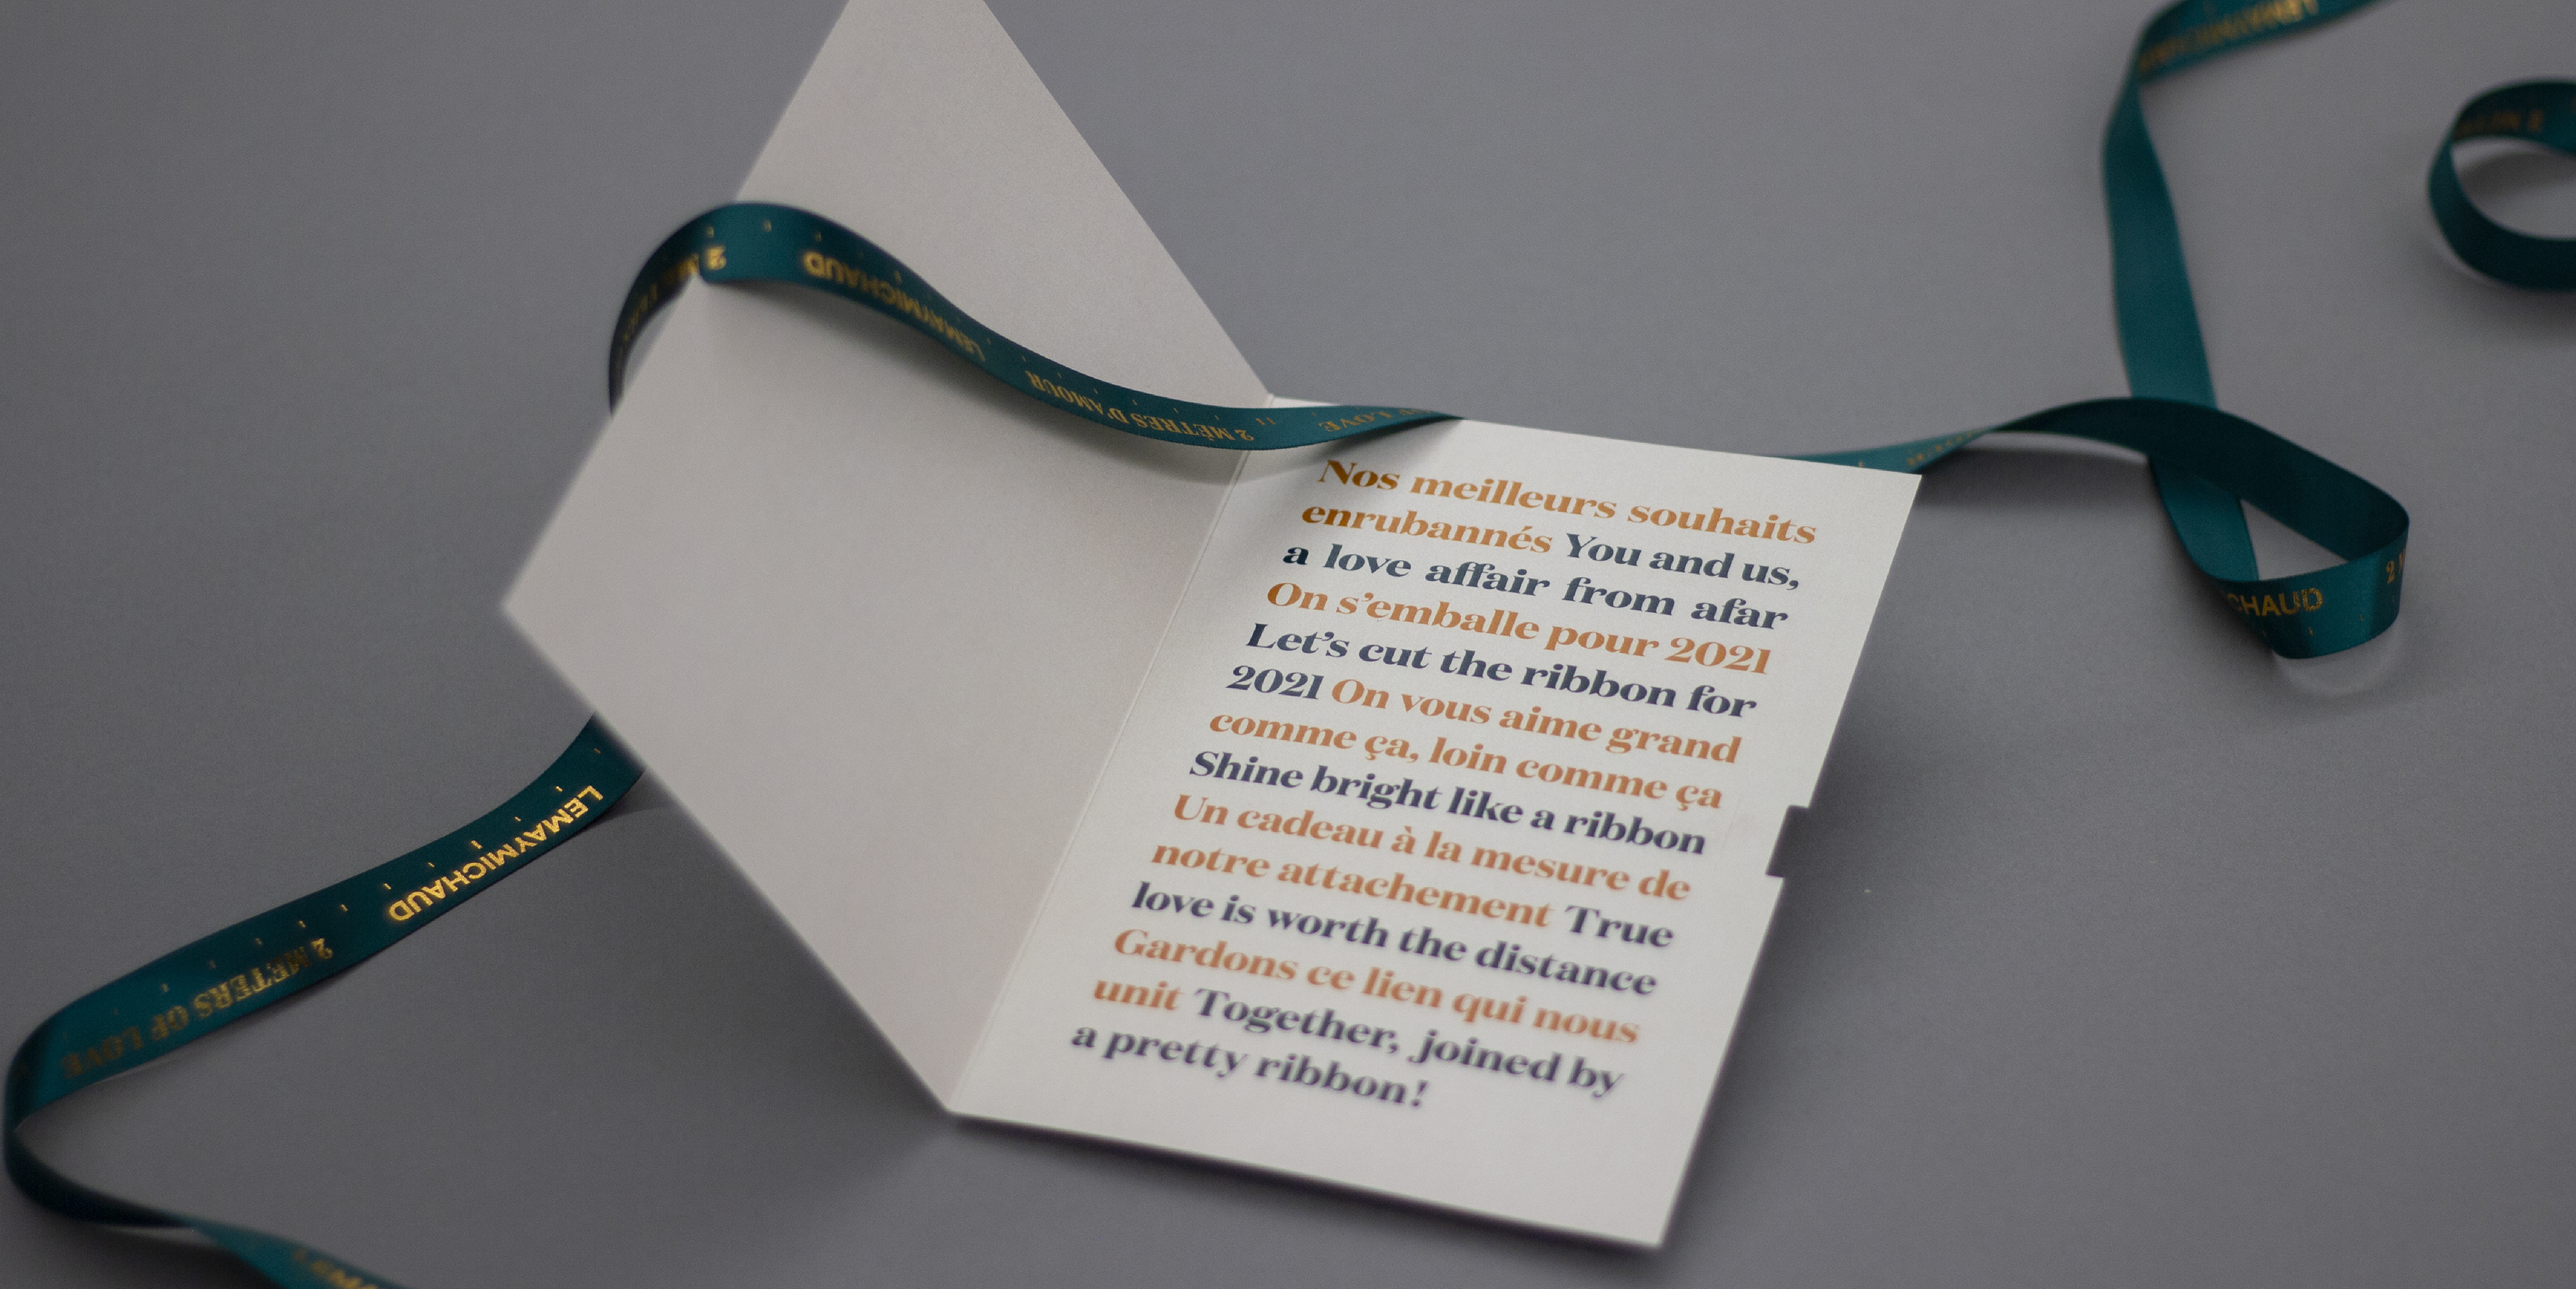 Nos meilleurs souhaits
enrubannés You and us,
a love affair from afar
On s'emballe pour 2021
Let's cut the ribbon for
2021 On vous aime grand
comme ça, loin comme ça
Shine bright like a ribbon
Un cadeau à la mesure de
notre attachement True
love is worth the distance
Gardons ce lien qui nous
unit Together, joined by
a pretty ribbon!
LEMAYMICHAUD
2 MÈTRES D'AMOUR
LOVE
LEMAYMICHAUD
2 METERS OF LOVE
CHAUD